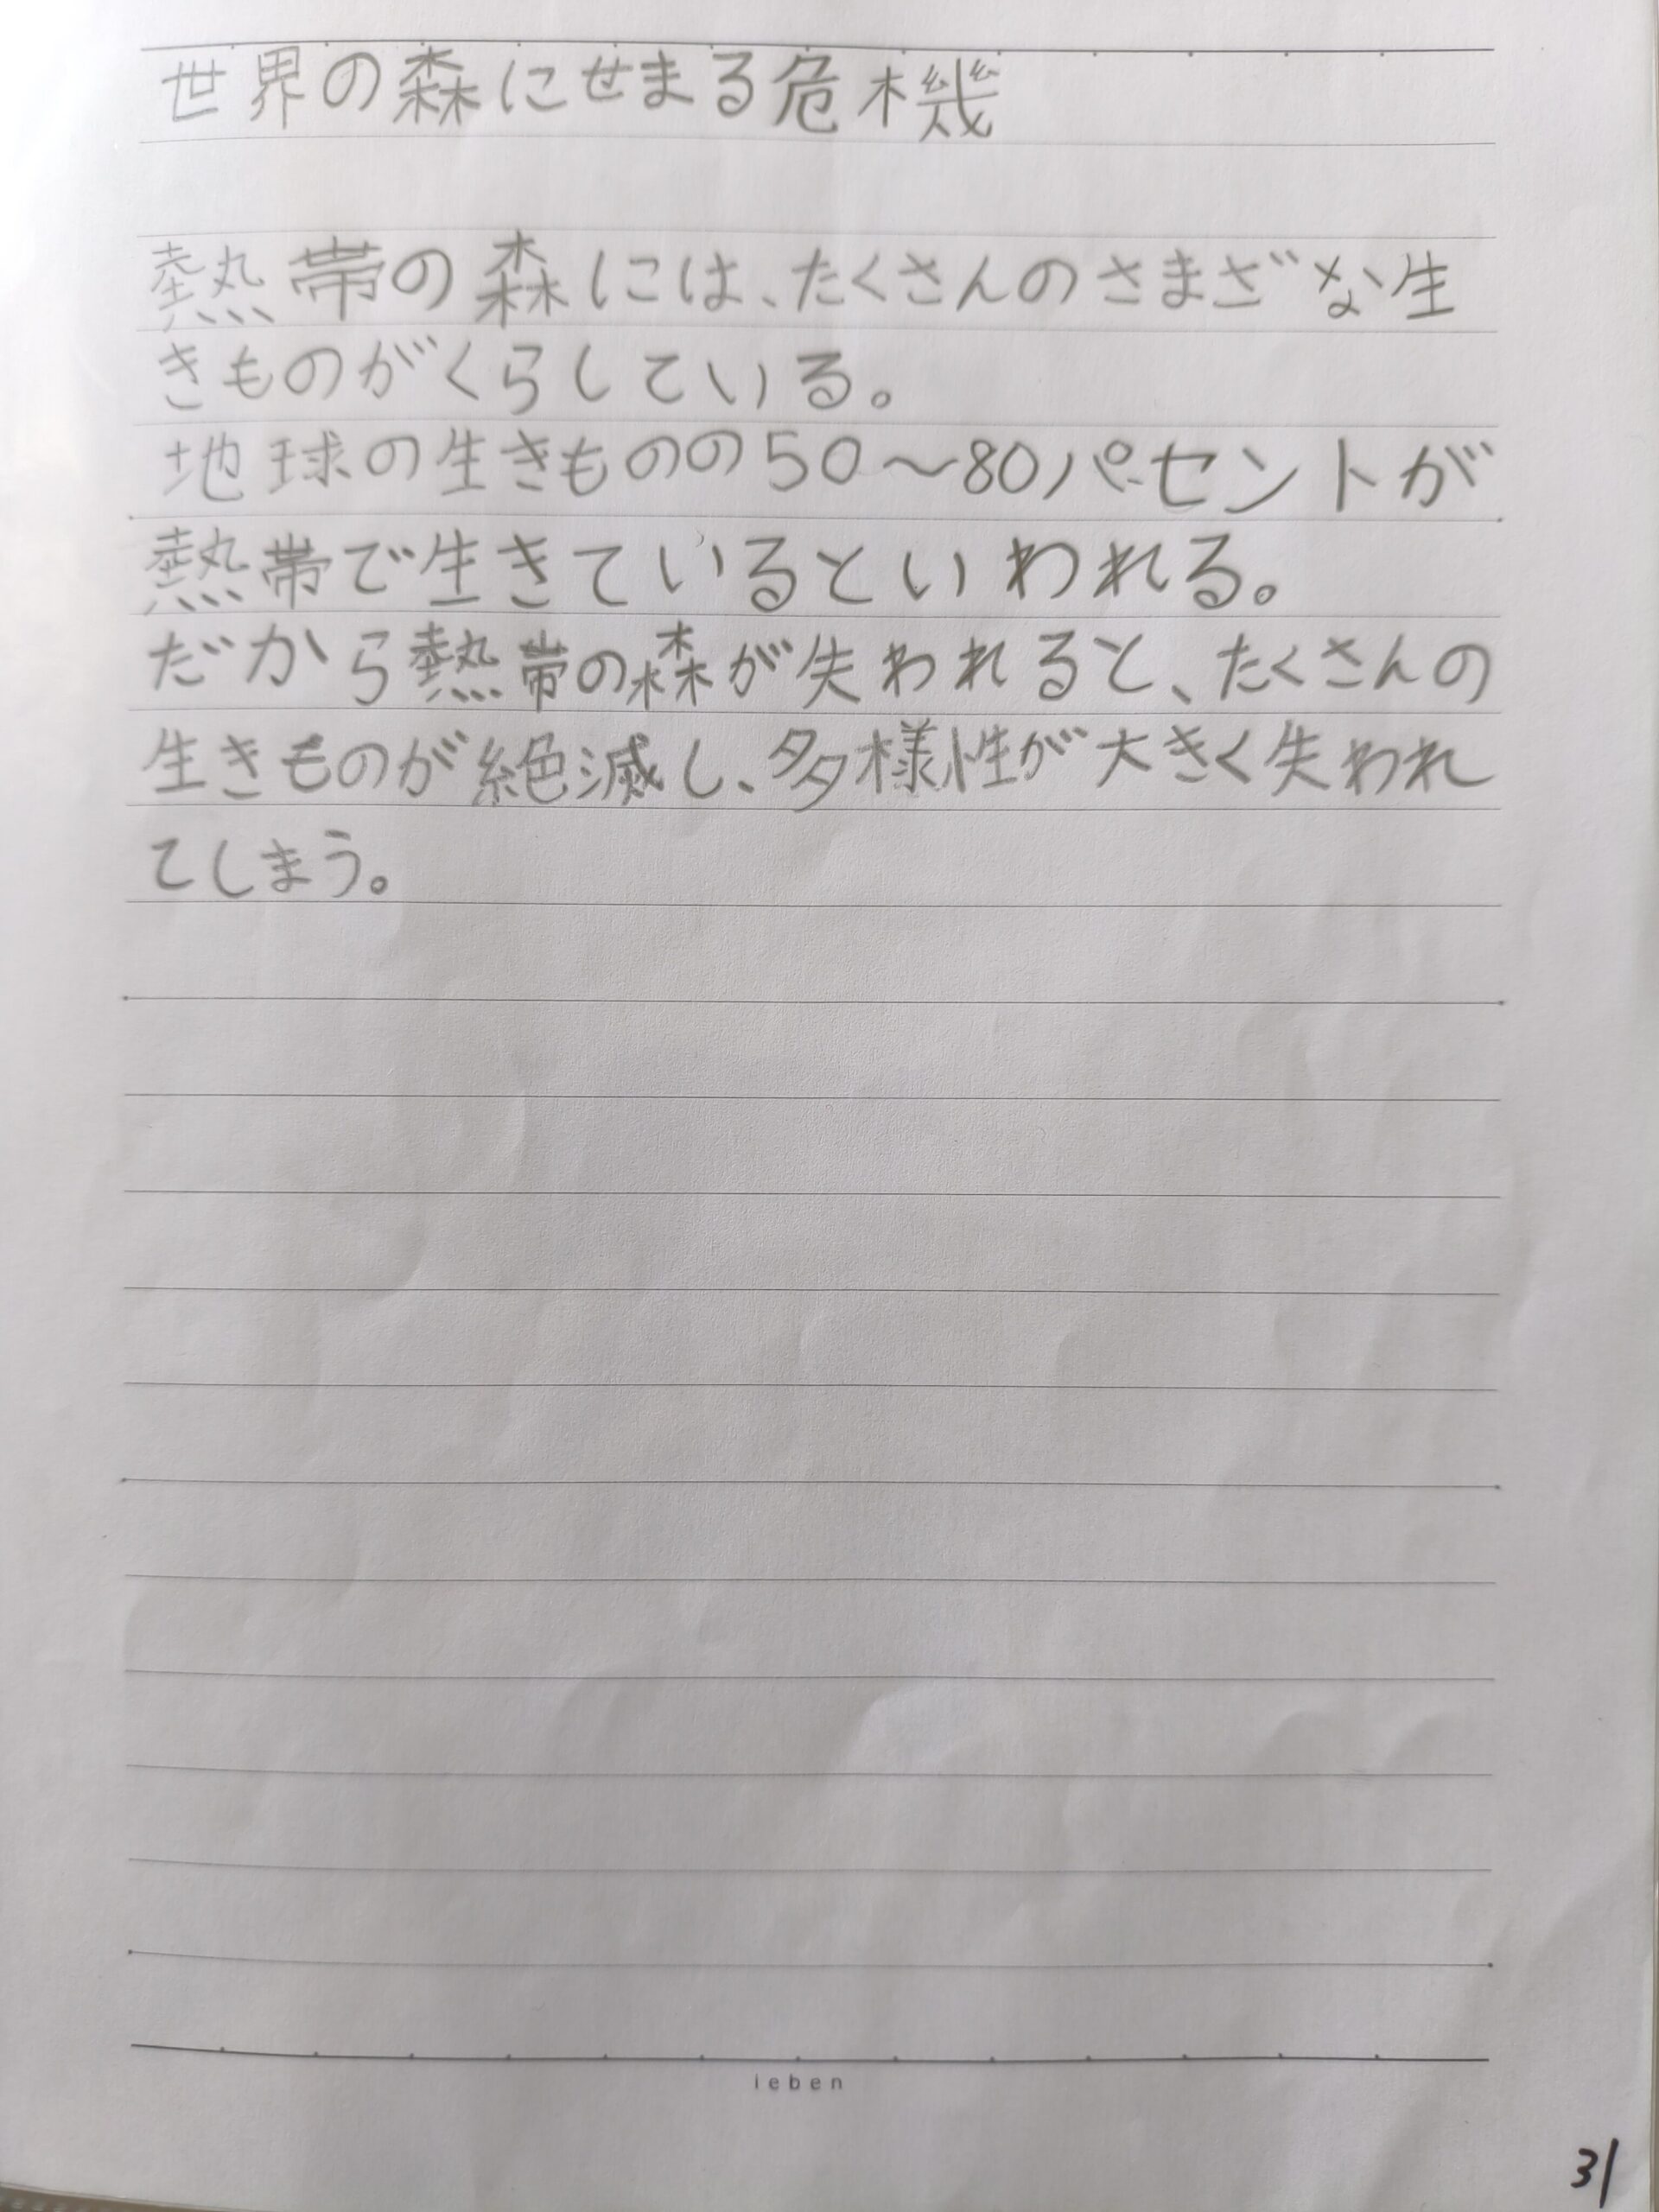 世界の森にせまる危機
熱帯の森には、たくさんのさまざな生
きものがくらしている。
地球の生きものの50〜80パーセントが
熱帯で生きているといわれる。
だから熱帯の森が失われると、たくさんの
生きものが絶滅し、多様性が大きく失われ
てしまう。
leben
31